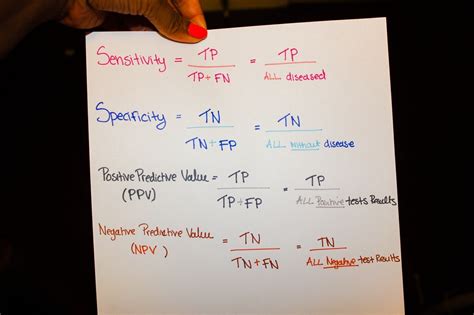 Sensitivity = TP / TP+FN = TP / ALL diseased
Specificity = TN / TN+FP = TN / ALL without disease
Positive Predictive Value = TP / TP+FP = TP / ALL Positive tests Results
(PPV)
Negative Predictive Value = TN / TN+FN = TN / ALL Negative test Results
(NPV)